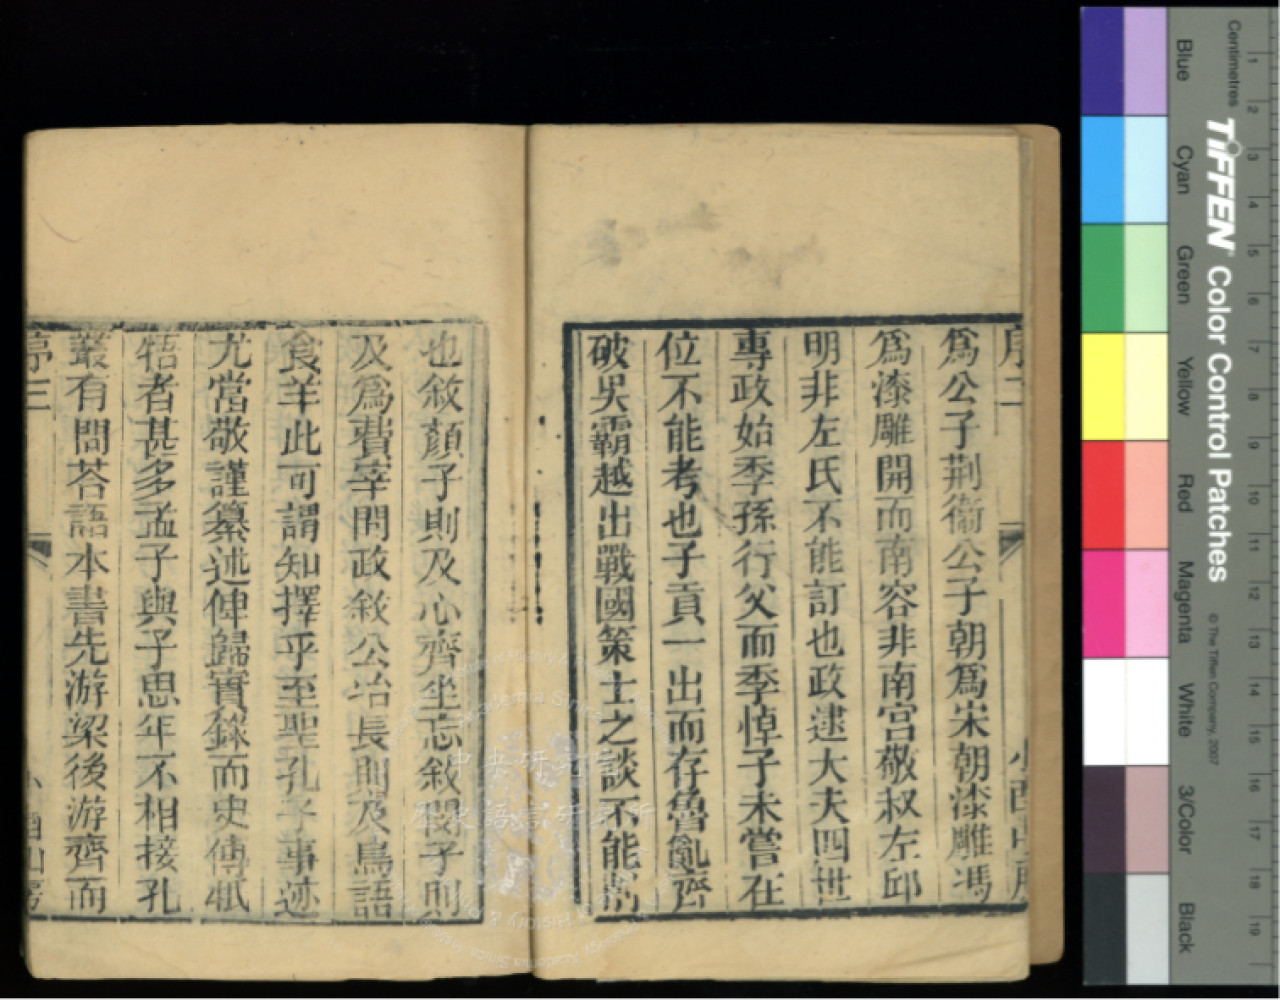 序二
爲公子荆衞公子朝爲宋朝漆雕馮
爲漆雕開而南容非南宮敬叔左邱
明非左氏不能訂也政逮大夫四世
專政始季孫行父而季悼子未嘗在
位不能考也子貢一出而存魯亂齊
破吳霸越出戰國策士之談不能
也敘顏子則及心齊坐忘敘閔子則
及爲費宰問政敘公冶長則及鳥語
食羊此可謂知擇乎至聖孔子事迹
尤當敬謹纂述俾歸實錄而史傳牴
牾者甚多孟子與子思年不相接孔
叢有問荅語本書先游梁後游齊而
序三
山房
中央研究院
歷史語言研究所
Centimetres
TIFFEN Color Control Patches
© The Tiffen Company, 2007
Blue
Cyan
Green
Yellow
Red
Magenta
White
3/Color
Black
1 2 3 4 5 6 7 8 9 10 11 12 13 14 15 16 17 18 19